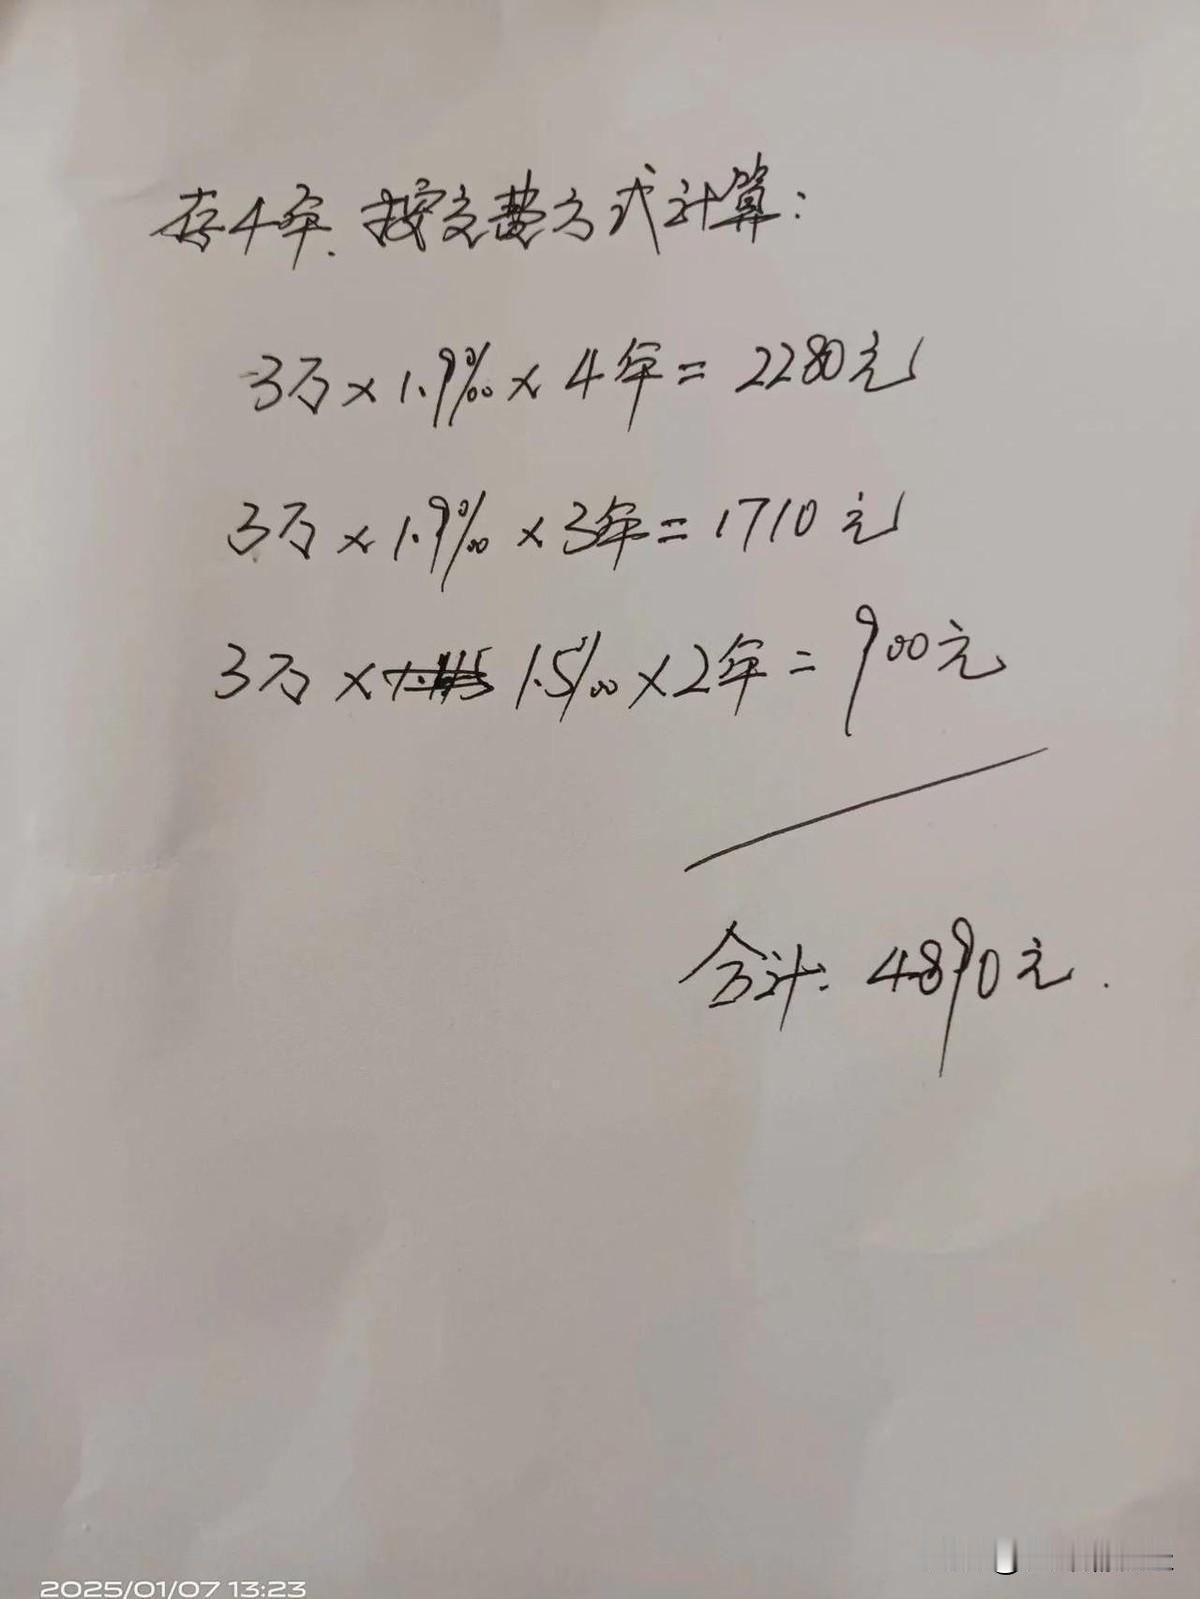 存4年.按交费方式计算:
3万×1.9%×4年=2280元
3万×1.9%×3年=1710元
3万×1.5%×2年=900元
合计:4890元.
2025/01/07 13:23